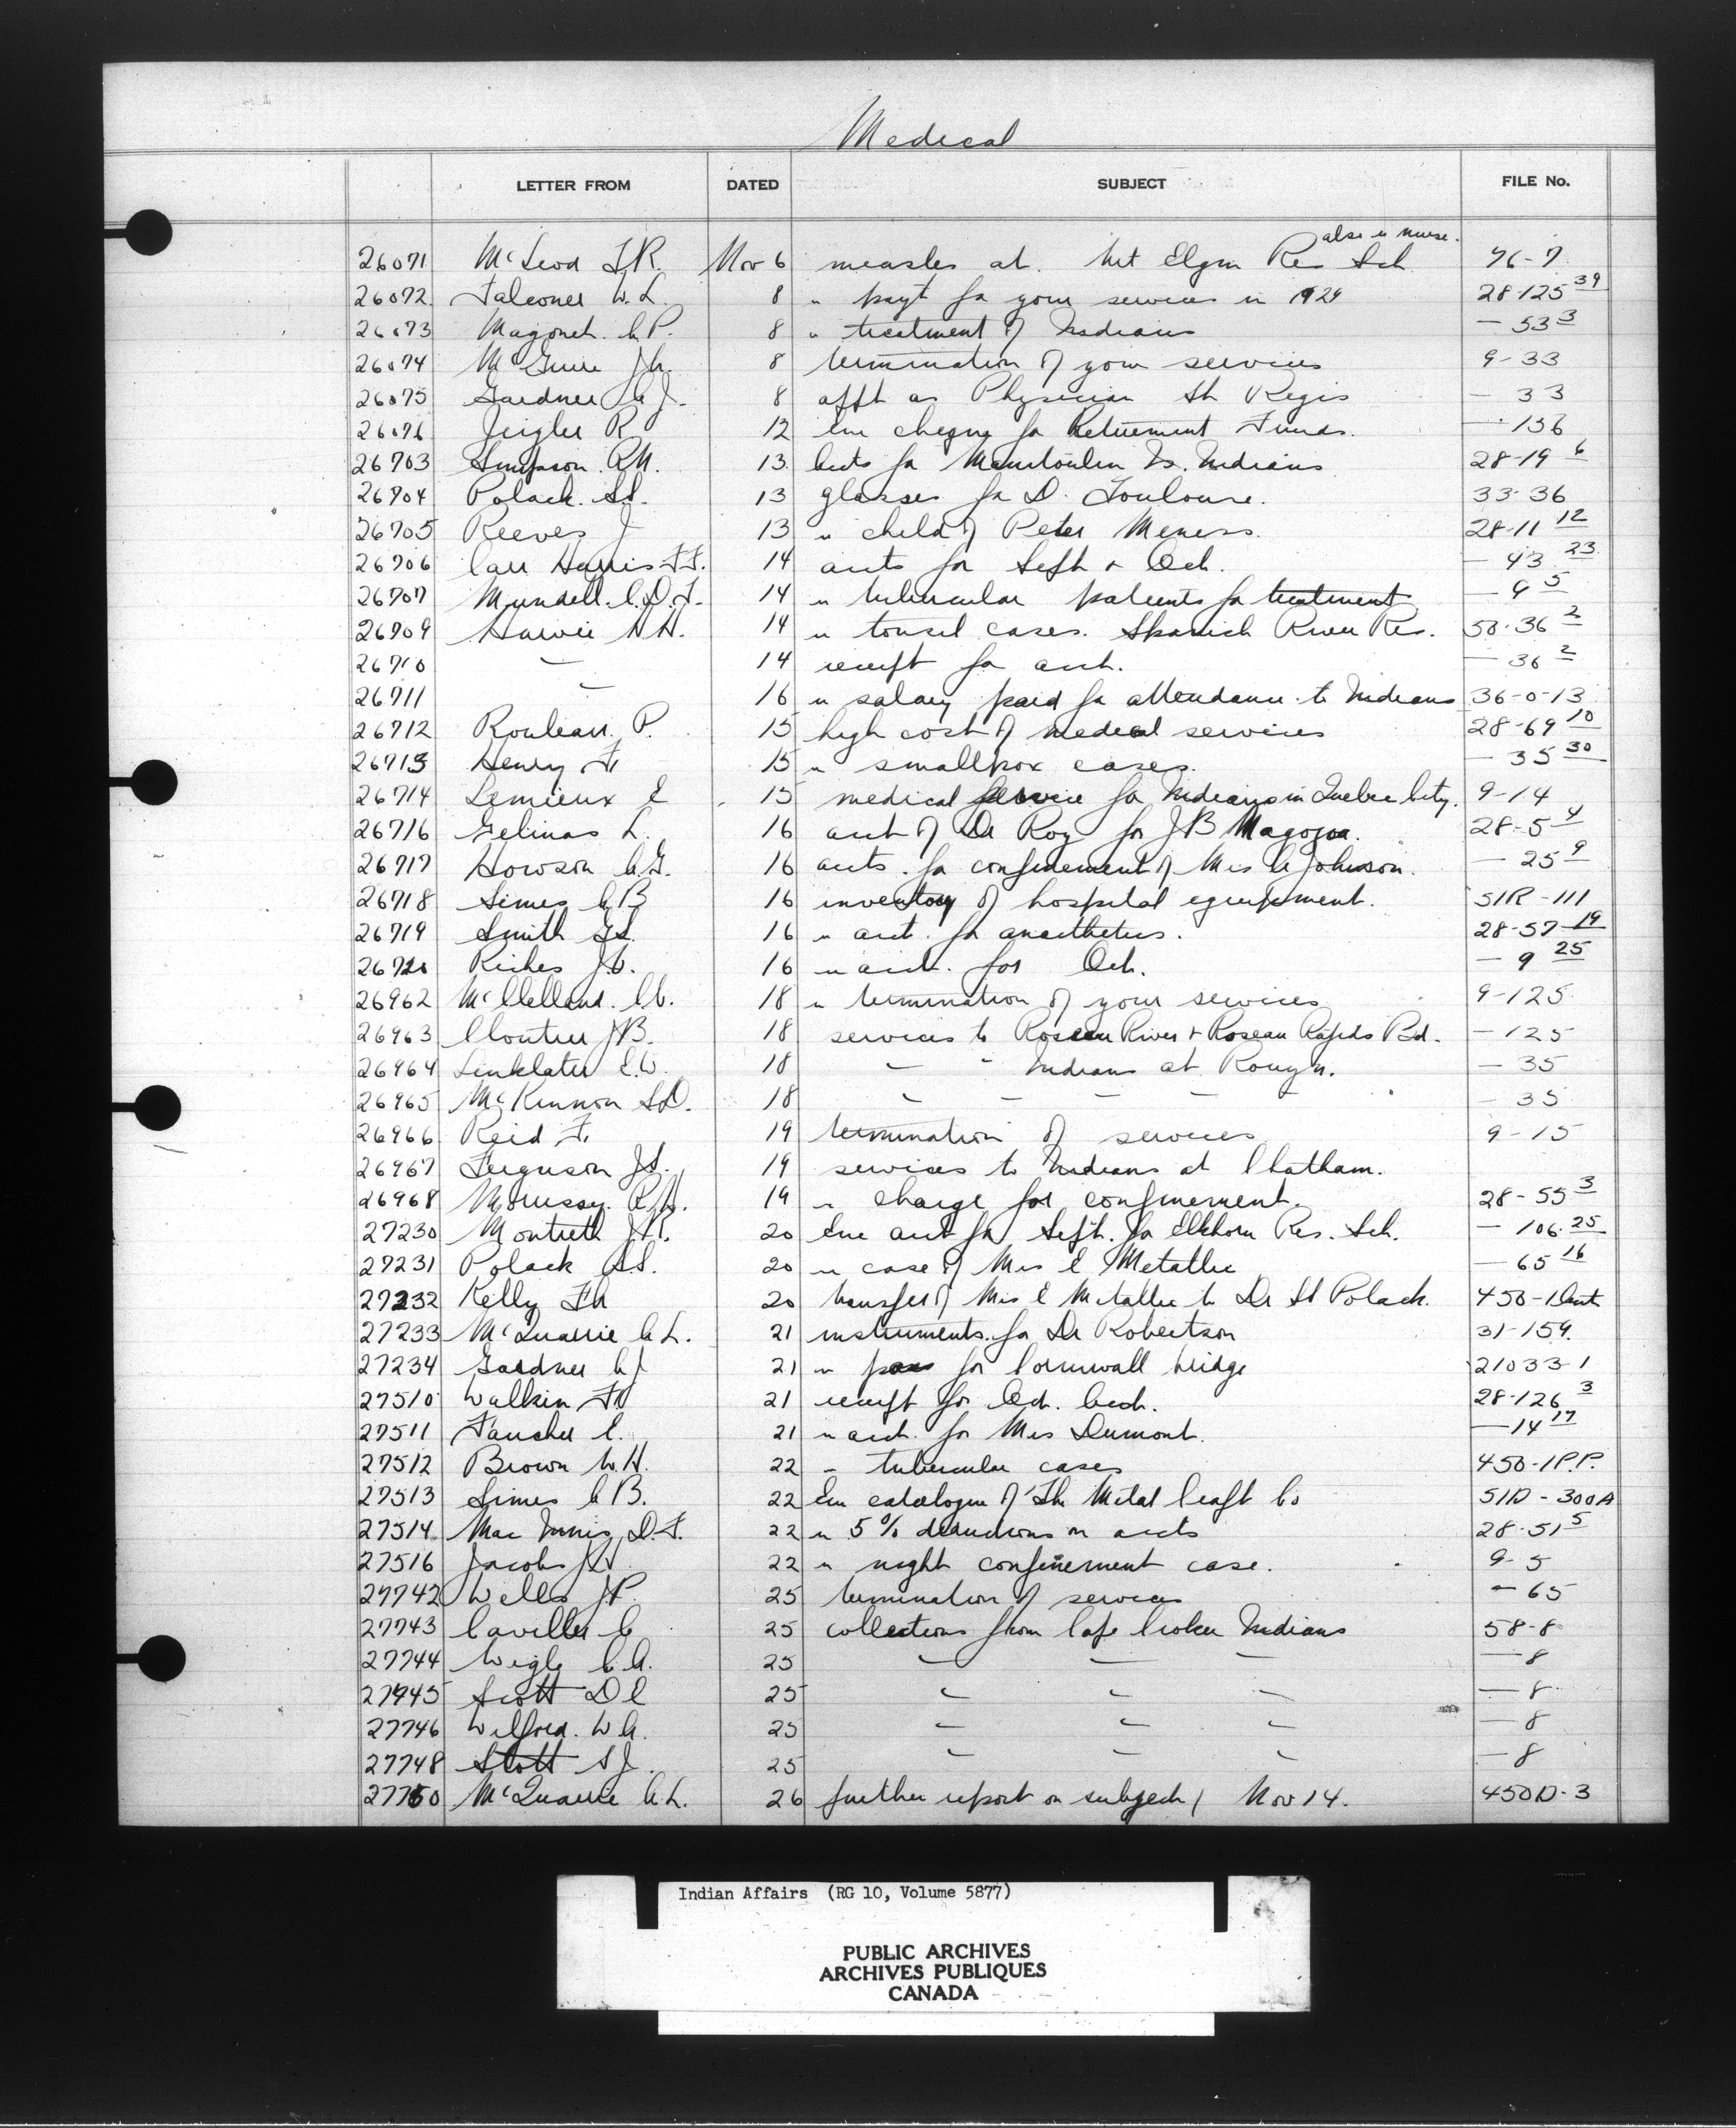 Medical
LETTER FROM DATED SUBJECT FILE No.
also re nurse.
26071 McLeod F.R. Nov 6 measles at Mt Elgin Res Sch 76-7
26072 Falconer W.L. 8 " payt for your services in 1929 28-125 39
26073 Magonet. C.P. 8 " treatment of Indians — 53 3
26074 McGuire J.C. 8 termination of your services 9-33
26075 Gardner C.J. 8 appt as Physician St Regis — 33
26076 R 12 Enc cheque for Retirement Funds. — 136
26703 Simpson R.M. 13 accts for Manitoulin Is. Indians 28-19 6
26704 Polack. S.S. 13 glasses for D. Toulouse. 33-36
26705 Reeves J 13 " child of Peter Meness. 28-11 12
26706 Carr Harris F.F. 14 accts for Sept + Oct. — 43 23
26707 Mundell. C.D.T. 14 " tubercular patients for treatment — 9 5
26709 Harvie 14 " tonsil cases. Spanish River Res. 50-36 2
26710 — 14 receipt for acct. — 36 2
26711 — 16 " salary paid for attendance to Indians 36-0-13
26712 Rouleau. P. 15 high cost of medical services 28-69 10
26713 Henry F. 15 " smallpox cases. — 35 30
26714 Lemieux E 15 medical service for Indians in Quebec City. 9-14
26716 Gelinas L. 16 acct of Dr Roy for J B Magojoa. 28-5 4
26717 Howson C.G. 16 accts. for confinement of Mrs A Johnson. — 25 9
26718 Simes C B 16 inventory of hospital equipment. 51R-111
26719 Smith G.S. 16 " acct. for anaesthetics. 28-57 19
26720 Riches J.C. 16 " acct. for Oct. — 9 25
26962 McClelland. C.C. 18 " termination of your services 9-125
26963 Cloutier J B. 18 services to Roseau River + Roseau Rapids Bd. — 125
26964 Linklater E.W. 18 — " Indians at Rouyn. — 35
26965 McKinnon S.D. 18 — — — — — 35
26966 Reid F. 19 termination of services 9-15
26967 Ferguson J.S. 19 services to Indians at Chatham.
26968 Morrissy. R.A. 19 " charge for confinement. 28-55 3
27230 Montieth J.R. 20 Enc acct for Sept. for Elkhorn Res. Sch. — 106-25
27231 Polack S.S. 20 " case of Mrs E Metallic — 65 16
27232 Kelly 20 transfer of Mrs E Metallic to Dr St Polack. 450-1
27233 McQuarrie A.L. 21 instruments. for Dr Robertson 31-159.
27234 Gardner C J 21 " pass for Cornwall bridge 21033-1
27510 Walkin 21 receipt for Oct. Acct. 28-126 3
27511 Faucher E. 21 " acct. for Mrs Dumont. — 14 17
27512 Brown W.H. 22 " tubercular cases 450-1 P.P.
27513 Simes C B. 22 Enc catalogue of The Metal Craft Co 51D-300A
27514 Mac Innis, D.F. 22 " 5% deductions on accts 28-51 5
27516 Jacobs 22 " night confinement case. 9-5
27742 Wells J P. 25 termination of services — 65
27743 Caviller C 25 collections from Cape Croker Indians 58-8
27744 Wigle C.A. 25 — — — — 8
27745 Scott D C 25 — — — — 8
27746 Wilford. W A. 25 — — — — 8
27748 Stott S J. 25 — — — — 8
27750 McQuarrie A.L. 26 further report on subject of Nov 14. 450D-3
Indian Affairs (RG 10, Volume 5877)
PUBLIC ARCHIVES
ARCHIVES PUBLIQUES
CANADA